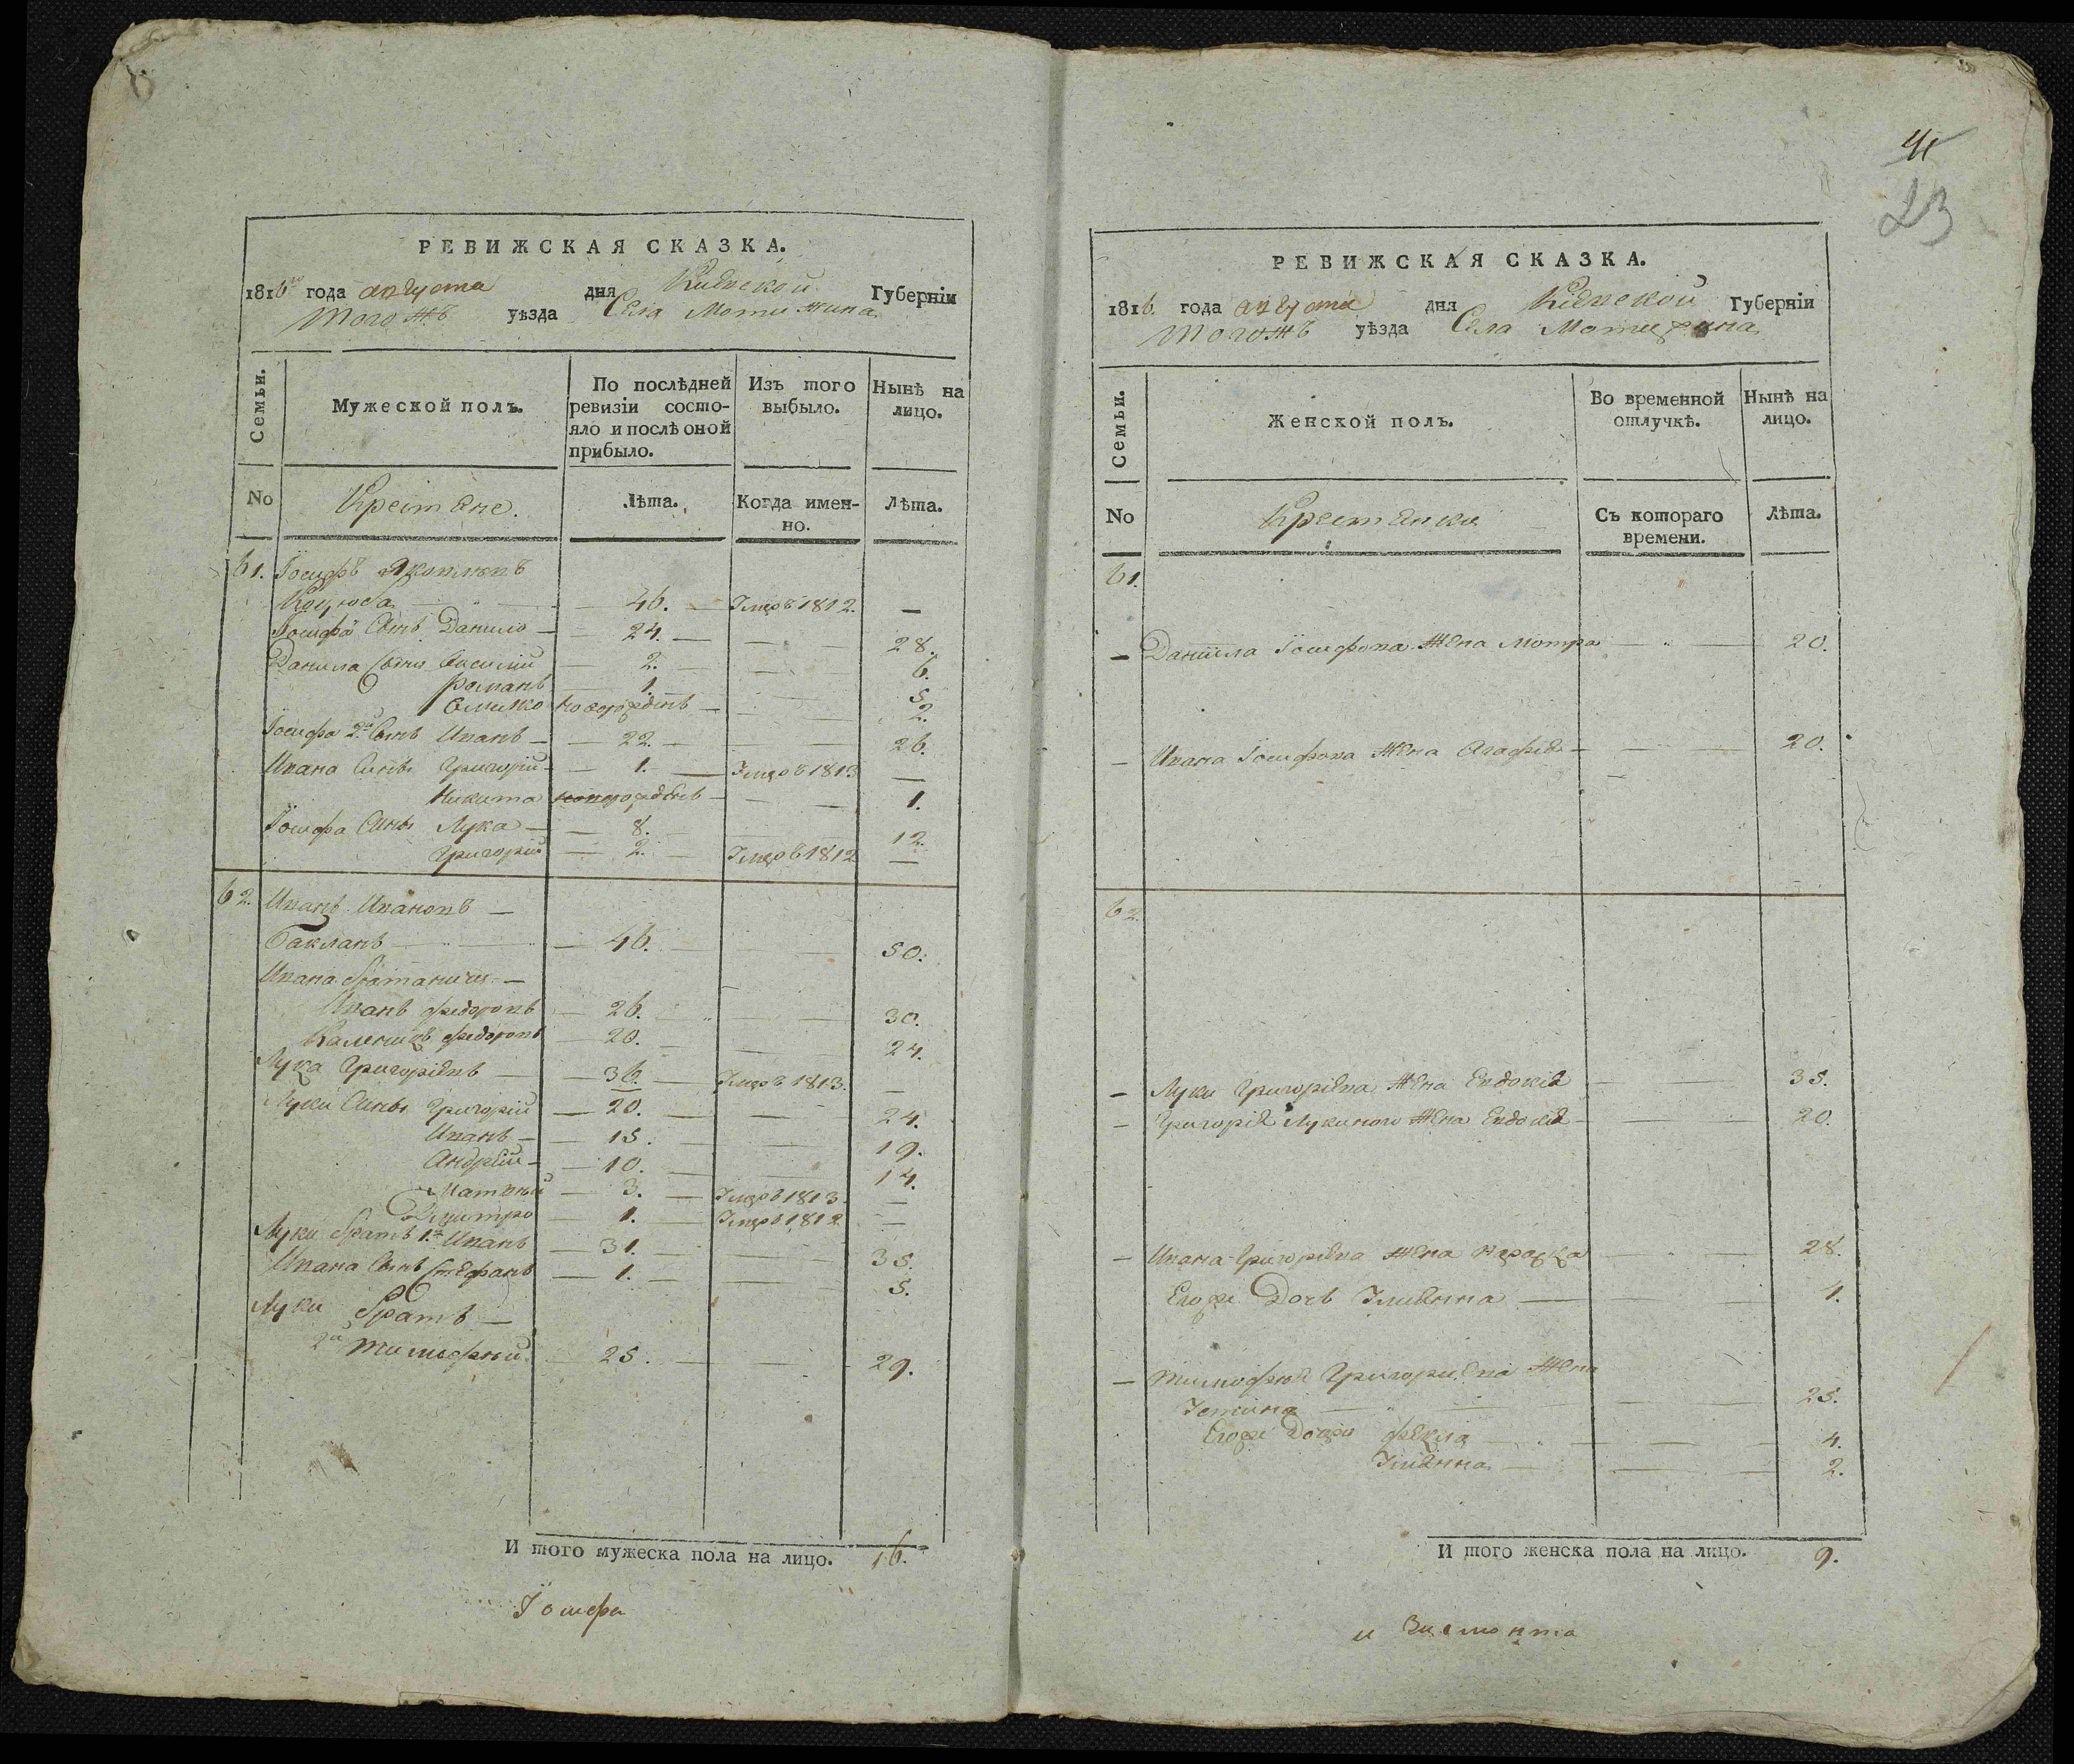 РЕВИЖСКАЯ СКАЗКА.
1816го года августа дня Киевской Губерніи
тогожъ уѣзда Села Мотижина
Семьи.
Мужеской полъ.
По послѣдней ревизіи состо-
яло и послѣ оной
прибыло.
Изъ того выбыло.
Нынѣ на лицо.
No
Крестяне.
Лѣта.
Когда имен-
но.
Лѣта.
61. Іосифъ Яковлевъ
Коцюба 46. Умеръ 1812. —
Іосифа Сынъ Данило 24. 28.
Данила Сыны Василій 2. 6.
Романъ 1. 5.
новорожденъ 2.
Іосифа 2й Сынъ Иванъ 22. 26.
Ивана Сыны Григорій 1. Умеръ 1813 —
Никита новорожденъ 1.
Іосифа Сыны Лука 8. 12.
Григорій 2. Умеръ 1812 —
62. Иванъ Ивановъ
Бакланъ 46. 50.
Ивана братаничи
Иванъ Федоровъ 26. 30.
Каленикъ Федоровъ 20. 24.
Лука Григоріевъ 36. Умеръ 1813. —
Луки Сыны Григорій 20. 24.
Иванъ 15. 19.
Андрей 10. 14.
Матвѣй 3. Умеръ 1813 —
Дмитро 1. Умеръ 1812 —
Луки братъ 1й Иванъ 31. 35.
Ивана Сынъ Стефанъ 1. 5.
Луки братъ
2й Тимофѣй 25. 29.
И того мужеска пола на лицо. 16.
Іосифа
41
23
РЕВИЖСКАЯ СКАЗКА.
1816. года августа дня Кіевской Губерніи
тогожъ уѣзда Села Мотижина
Семьи.
Женской полъ.
Во временной отлучкѣ.
Нынѣ на лицо.
No
Крестянки
Съ котораго
времени.
Лѣта.
61.
— Данила Іосифова Жена Мотра 20.
— Ивана Іосифова Жена Агафія 20.
62.
— Луки Григоріева Жена Евдокія 35.
— Григорія Лукиного Жена Евдокія 20.
— Ивана Григоріева Жена 28.
Егожъ Дочь Уліянна 4.
— Тимофѣя Григоріева Жена
Устина 25.
Егожъ Дочери Фекла 4.
Уліянна 2.
И того женска пола на лицо. 9.
и